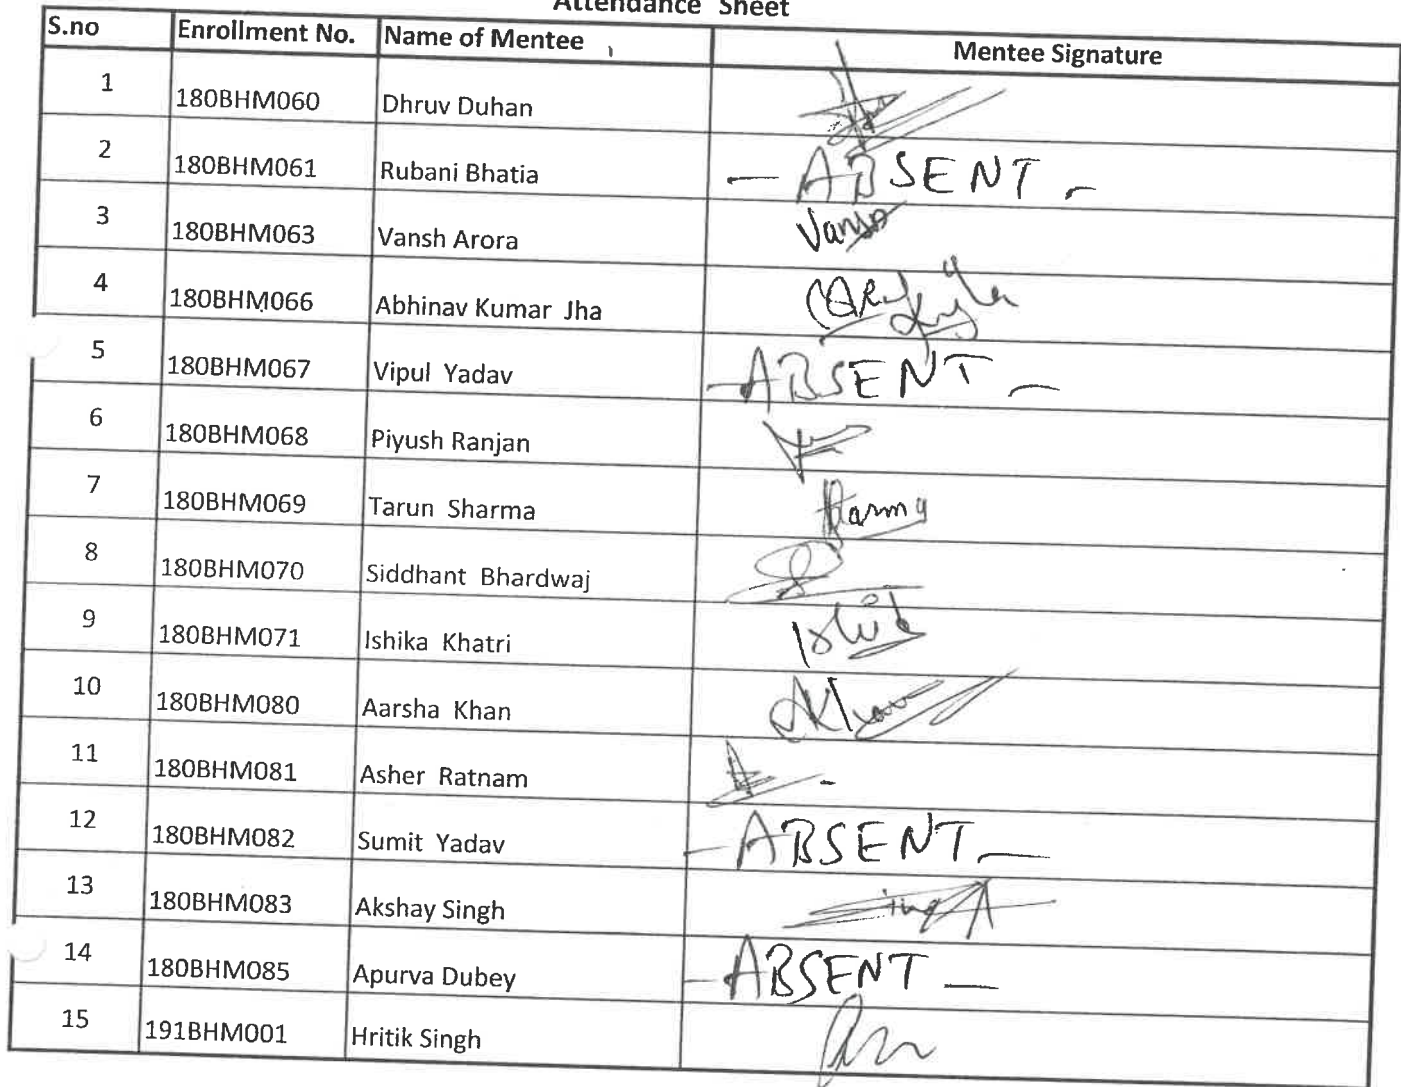 Attendance Sheet
S.no Enrollment No. Name of Mentee Mentee Signature
1 180BHM060 Dhruv Duhan
2 180BHM061 Rubani Bhatia - ABSENT -
3 180BHM063 Vansh Arora Vansh
4 180BHM066 Abhinav Kumar Jha
5 180BHM067 Vipul Yadav - ABSENT -
6 180BHM068 Piyush Ranjan
7 180BHM069 Tarun Sharma
8 180BHM070 Siddhant Bhardwaj
9 180BHM071 Ishika Khatri
10 180BHM080 Aarsha Khan
11 180BHM081 Asher Ratnam
12 180BHM082 Sumit Yadav - ABSENT -
13 180BHM083 Akshay Singh
14 180BHM085 Apurva Dubey - ABSENT -
15 191BHM001 Hritik Singh